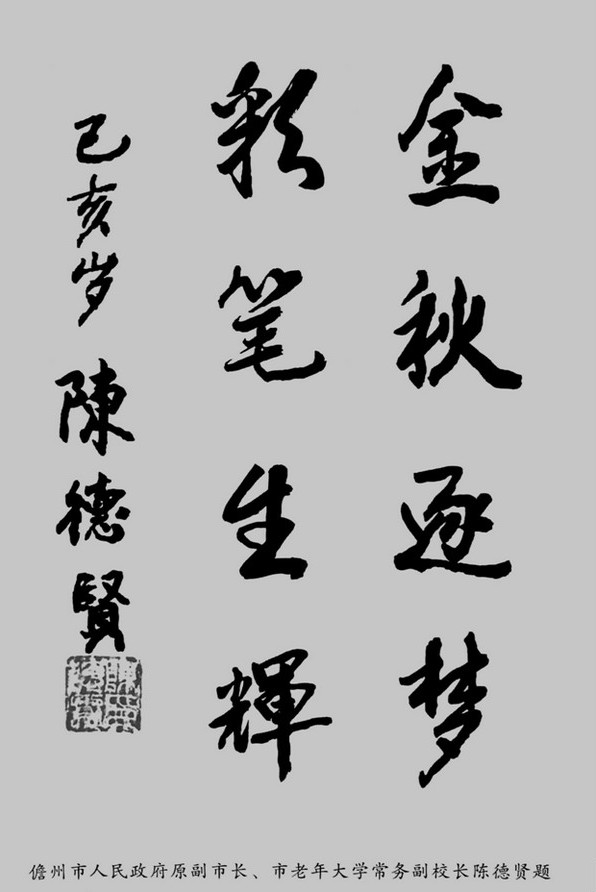 金秋逐梦
彩笔生輝
己亥岁 陳德賢
儋州市人民政府原副市长、市老年大学常务副校长陈德贤题